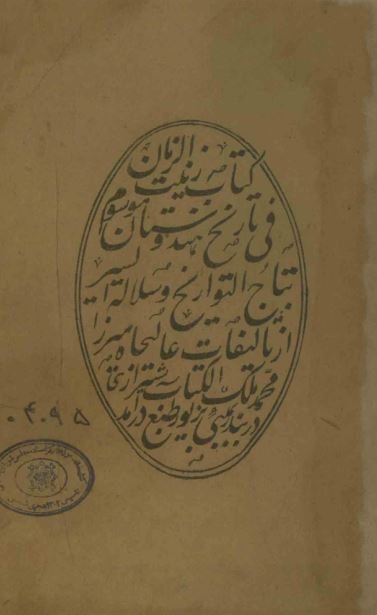 کتاب زینت الزمان
فی تاریخ هندوستان الموسوم
بتاج التواریخ و سلالة السیر
از تالیفات عالیجاه میرزا
محمد ملک الکتاب شیرازی
در بندر بمبئی بزیور طبع درآمد
۰۴۰۹۵